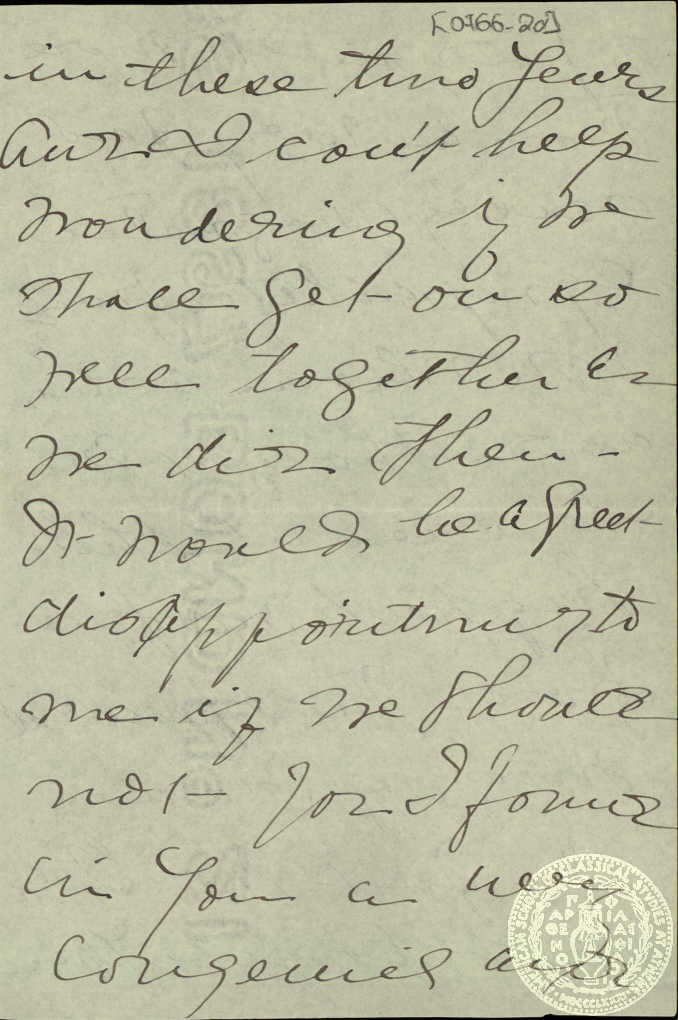 [0766-20]
in these two years
and I can't help
wondering if we
shall get on so
well together as
we did then -
It would be a great
disappointment to
me if we should
not - for I found
in you a very
congenial and